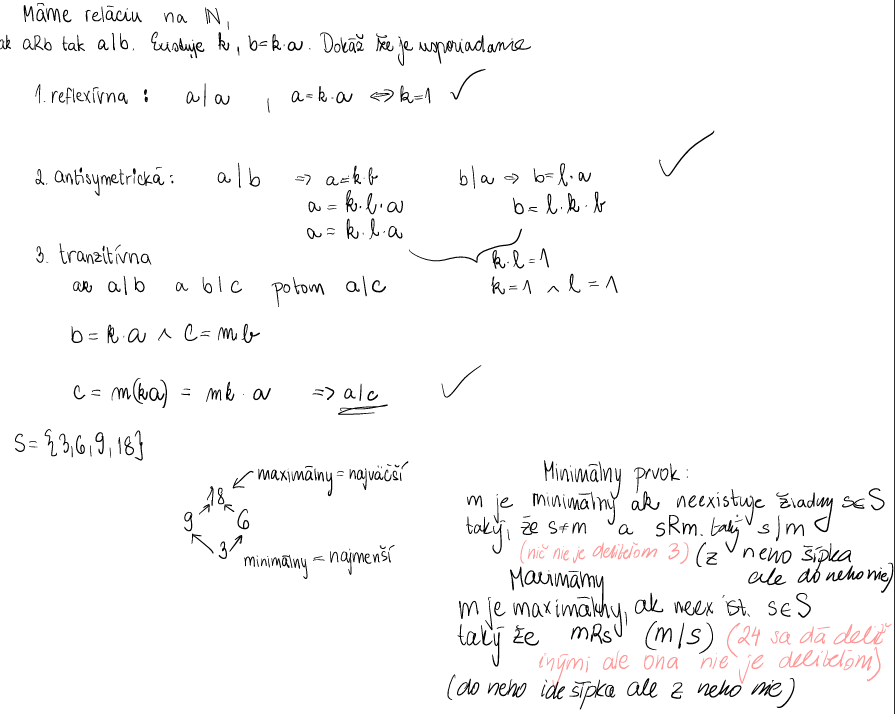 Máme reláciu na ℕ,
ak aRb tak a|b. Existuje k, b=k·a. Dokáž že je usporiadanie
1. reflexívna : a|a , a=k·a ⇔ k=1 ✓
2. antisymetrická: a|b ⇒ a=k·b b|a ⇒ b=l·a ✓
a = k·l·a b=l·k·b
a = k·l·a
k·l=1
k=1 ∧ l=1
3. tranzitívna
ak a|b a b|c potom a|c
b=k·a ∧ c=mb
c = m(ka) = mk·a ⇒ a|c ✓
S={3,6,9,18}
maximálny=najväčší
18
9 6
3
minimálny=najmenší
Minimálny prvok:
m je minimálny ak neexistuje žiadny s∈S
taký, že s≠m a sRm. taký s/m
(nič nie je deliteľom 3) (z neho šípka
ale do neho nie)
Maximálny
m je maximálny, ak neexist. s∈S
taký že mRs (m/s) (24 sa dá deliť
inými ale ona nie je deliteľom)
(do neho ide šípka ale z neho nie)